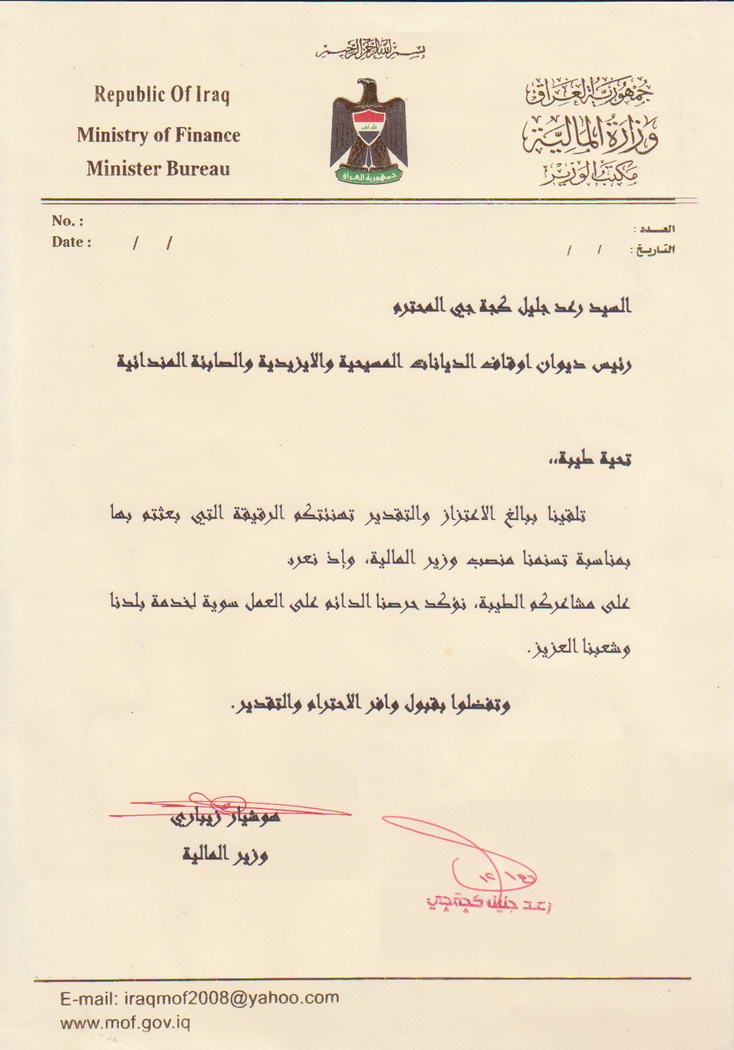 بسم الله الرحمن الرحيم
Republic Of Iraq
Ministry of Finance
Minister Bureau
الله اكبر
جمهورية العراق
جمهورية العراق
وزارة المالية
مكتب الوزير
No. :
Date : / /
العـــدد :
التاريخ : / /
السيد رعد جليل كجة جي المحترم
رئيس ديوان اوقاف الديانات المسيحية والايزيدية والصابئة المندائية
تحية طيبة،،
تلقينا ببالغ الاعتزاز والتقدير تهنئتكم الرقيقة التي بعثتم بها
بمناسبة تسنمنا منصب وزير المالية، وإذ نعرب
على مشاعركم الطيبة، نؤكد حرصنا الدائم على العمل سوية لخدمة بلدنا
وشعبنا العزيز.
وتفضلوا بقبول وافر الاحترام والتقدير.
هوشيار زيباري
وزير المالية
رعد جليل كجة جي
E-mail: iraqmof2008@yahoo.com
www.mof.gov.iq